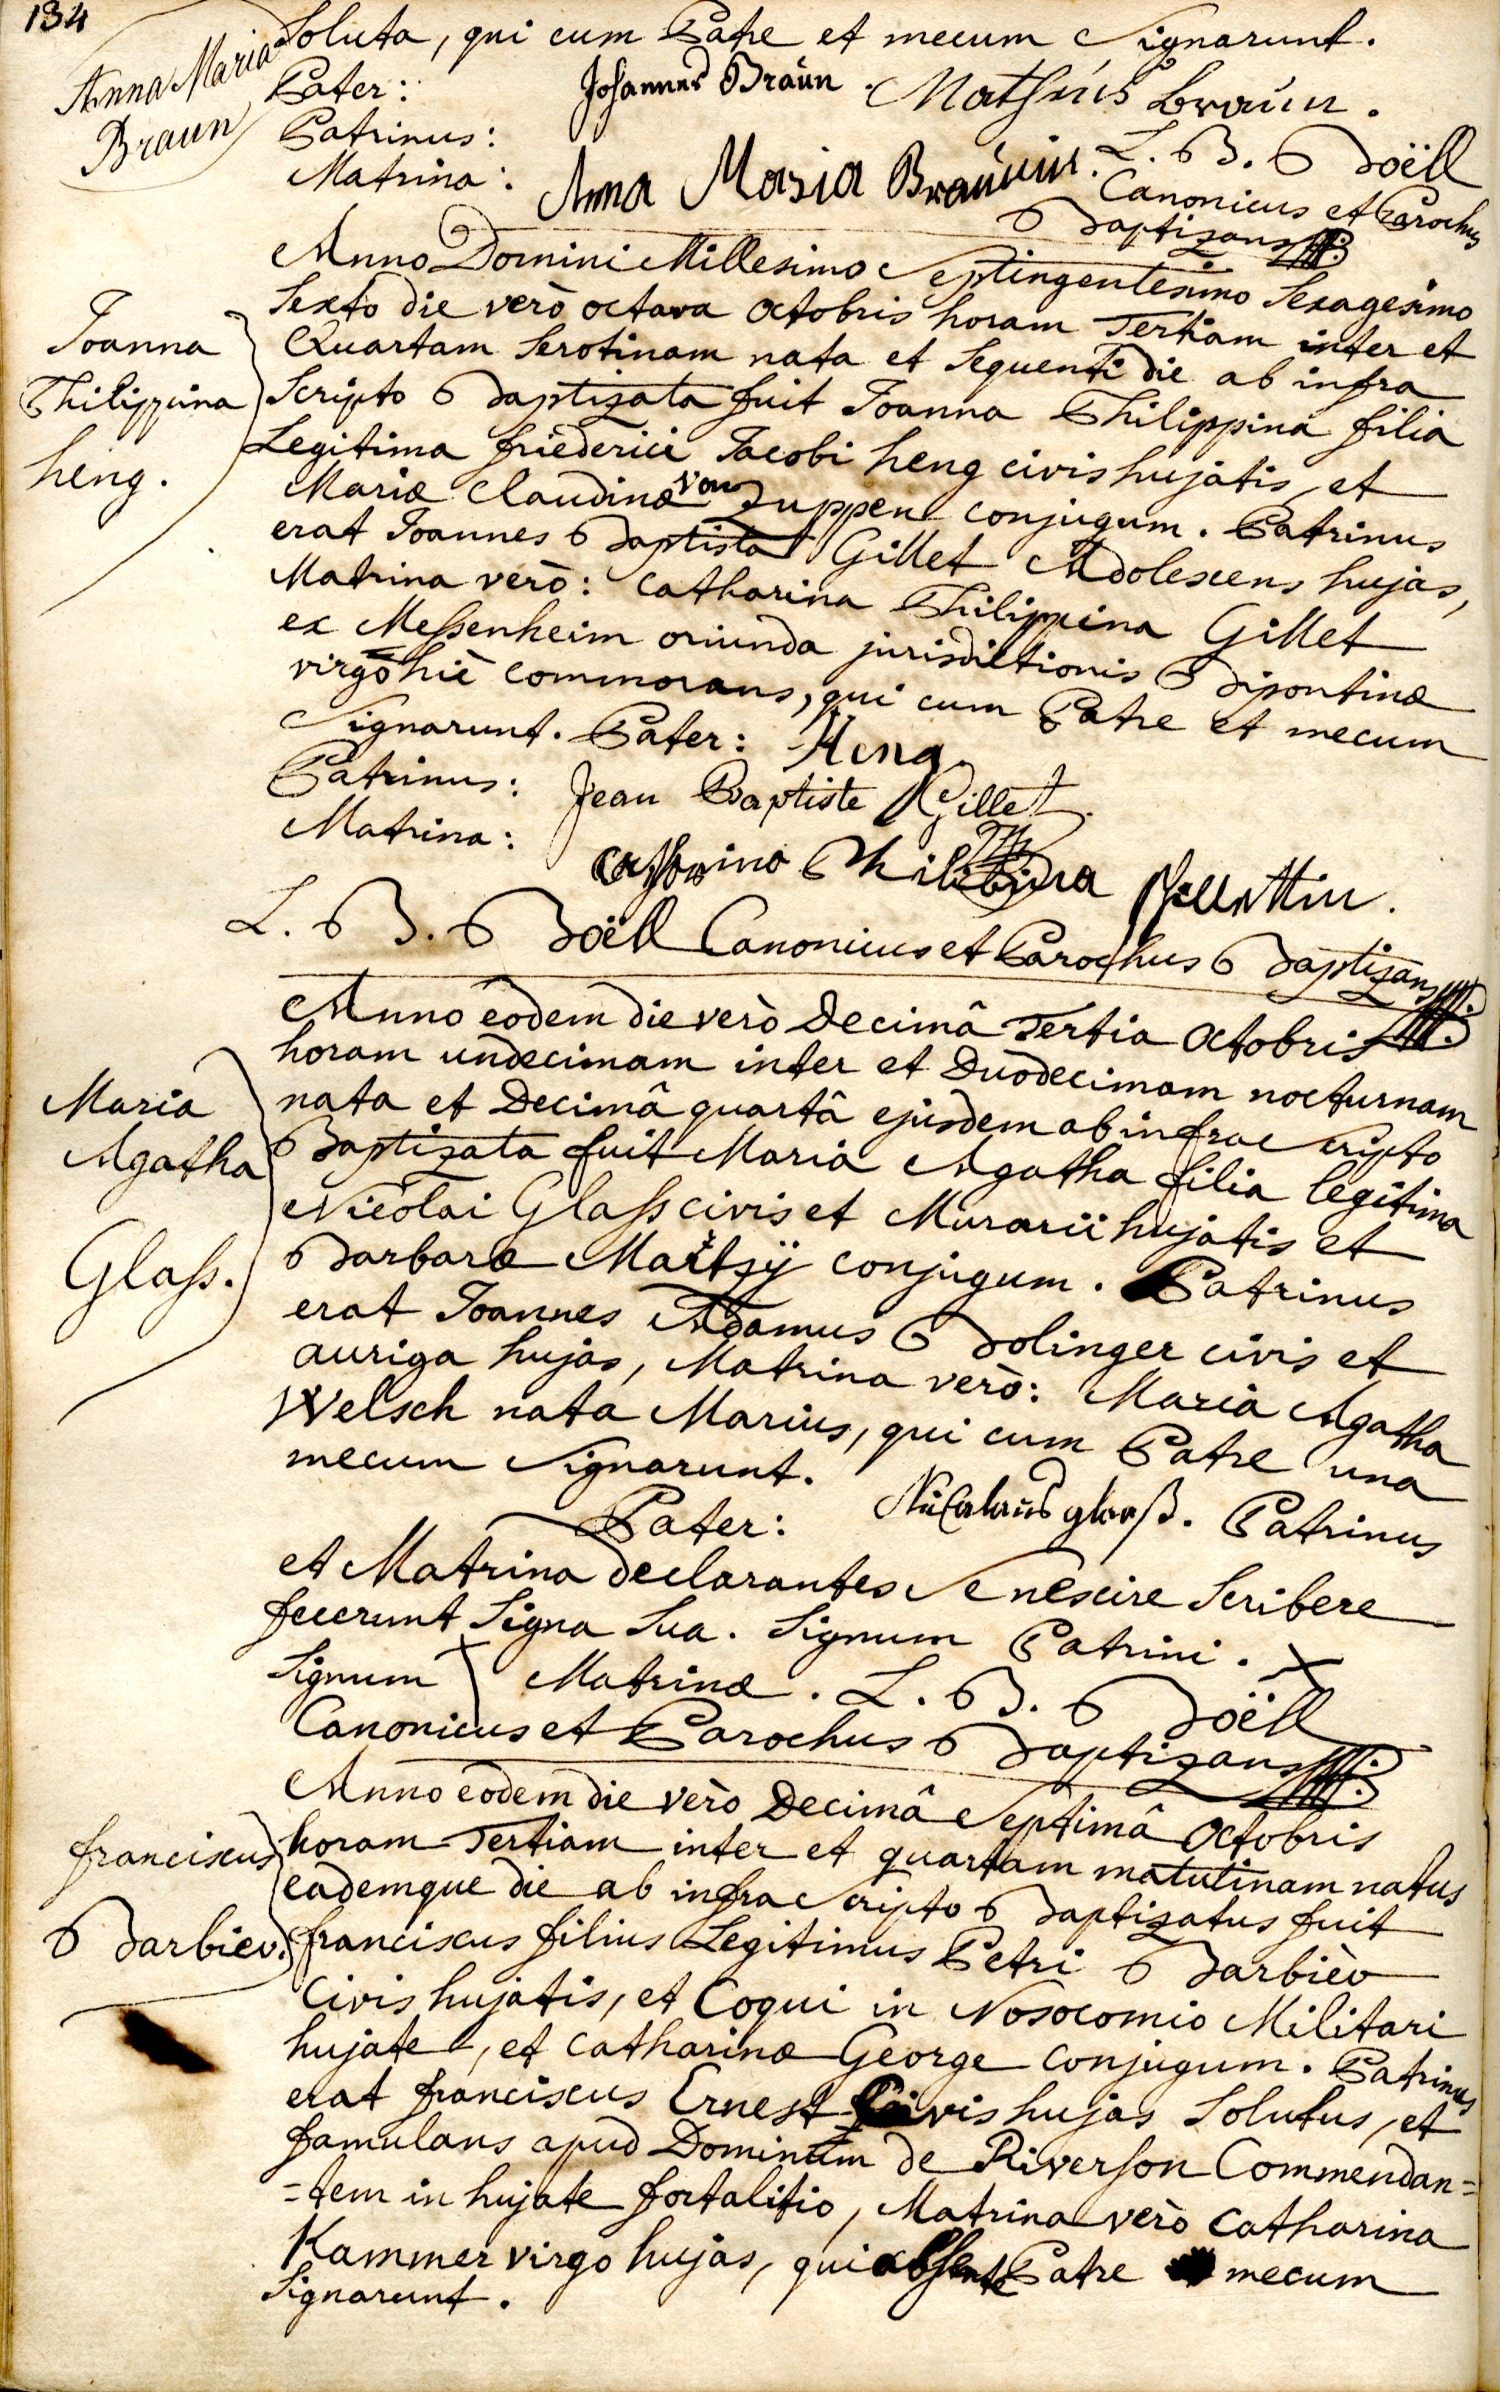 134
Soluta, qui cum Patre et mecum Signarunt.
Anna Maria
Braun
Pater: Johannes Braun.
Patrinus: Mathius Braun.
Matrina: Anna Maria Braunin.
L. B. Boëll
Canonicus et Parochus
Baptizans
Anno Domini Millesimo Septingentesimo Sexagesimo
Sexto die verò octava octobris horam Tertiam inter et
Quartam Serotinam nata et Sequenti die ab infra
Scripto Baptizata fuit Joanna Philippina filia
Legitima friederici Jacobi heng civis hujatis, et
Mariæ Claudinæ von Zuppen conjugum. Patrinus
erat Joannes Baptista Gillet Adolescens hujas,
Matrina verò: Catharina Philippina Gillet
ex Meßenheim oriunda jurisdictionis Bipontinæ
virgo hìc commorans, qui cum Patre et mecum
Signarunt. Pater: Heng.
Joanna
Philippina
heng.
Patrinus: Jean Baptiste Gillet.
Matrina: Catharina Philibina Gillettin.
L. B. Boëll Canonicus et Parochus Baptizans
Anno eodem die verò Decimâ Tertia octobris
horam undecimam inter et Duodecimam nocturnam
nata et Decimâ quartâ ejusdem ab infra Scripto
Baptizata fuit Maria Agatha filia legitima
Nicolai Glaß civis et Murarii hujatis et
Barbaræ Maitzÿ conjugum. Patrinus
erat Joannes Adamus Bolinger civis et
auriga hujas, Matrina verò: Maria Agatha
Welsch nata Marius, qui cum Patre una
mecum Signarunt.
Maria
Agatha
Glaß.
Pater: Nicalaus glaß. Patrinus
et Matrina declarantes Se nescire Scribere
fecerunt Signa Sua. Signum Patrini. X
Signum X Matrinæ. L. B. Boëll
Canonicus et Parochus Baptizans
Anno eodem die verò Decimâ Septimâ octobris
horam Tertiam inter et quartam matutinam natus
eademque die ab infra Scripto Baptizatus fuit
franciscus filius Legitimus Petri Barbièv
Civis hujatis, et Coqui in Nosocomio Militari
hujate, et Catharinæ George conjugum. Patrinus
erat franciscus Ernest Civis hujas Solutus, et
famulans apud Dominum de Riverson Commendan=
=tem in hujate fortalitio, Matrina verò Catharina
Kammer virgo hujas, qui absente Patre mecum
Signarunt.
franciscus
Barbiev.